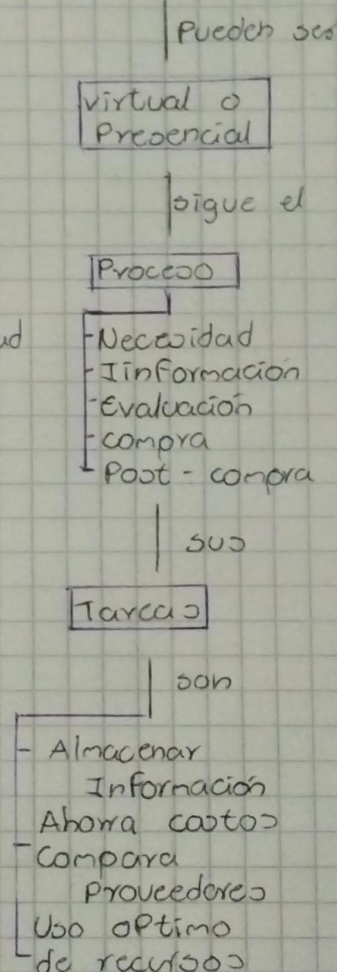 Pueden ser
virtual o
Presencial
sigue el
Proceso
- Necesidad
- Iinformacion
- Evaluación
- compra
- Post - compra
sus
Tareas
son
- Almacenar
Información
Ahorra costos
- Compara
Proveedores
Uso optimo
de recursos